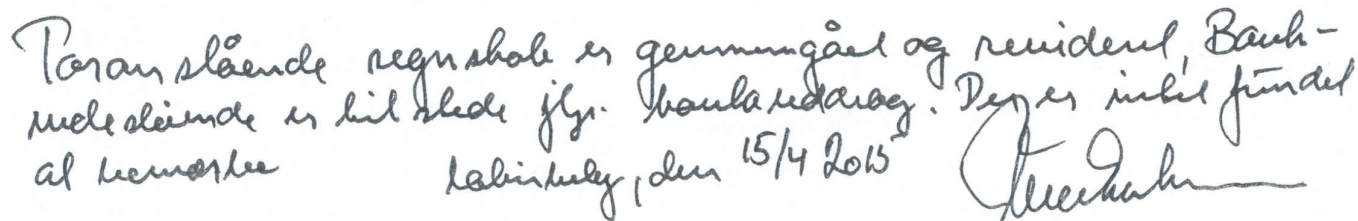 Foranstående regnskab er gennemgået og revideret, Bank-
indestående er til stede jfr. kontouddrag. Der er intet fundet
at bemærke , den 15/4 2015